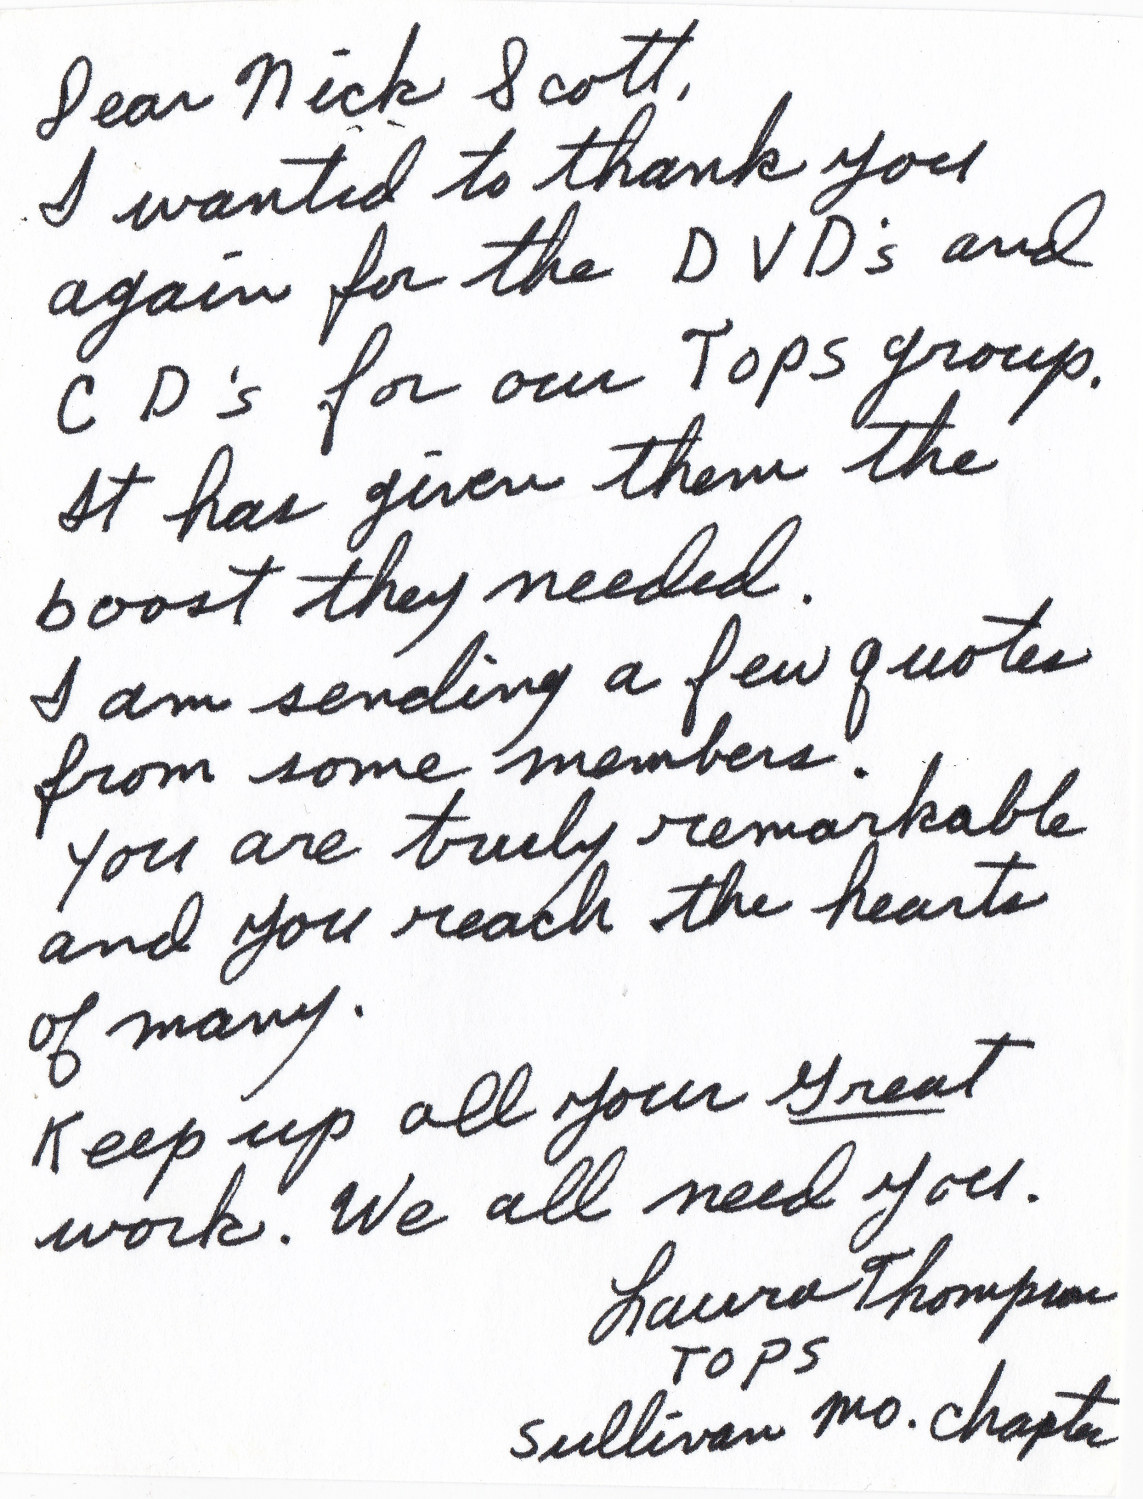 Dear Nick Scott,
I wanted to thank you
again for the DVD's and
CD's for our TOPS group.
It has given them the
boost they needed.
I am sending a few quotes
from some members.
You are truly remarkable
and you reach the hearts
of many.
Keep up all your great
work. We all need you.
Laura Thompson
TOPS
Sullivan Mo. Chapter